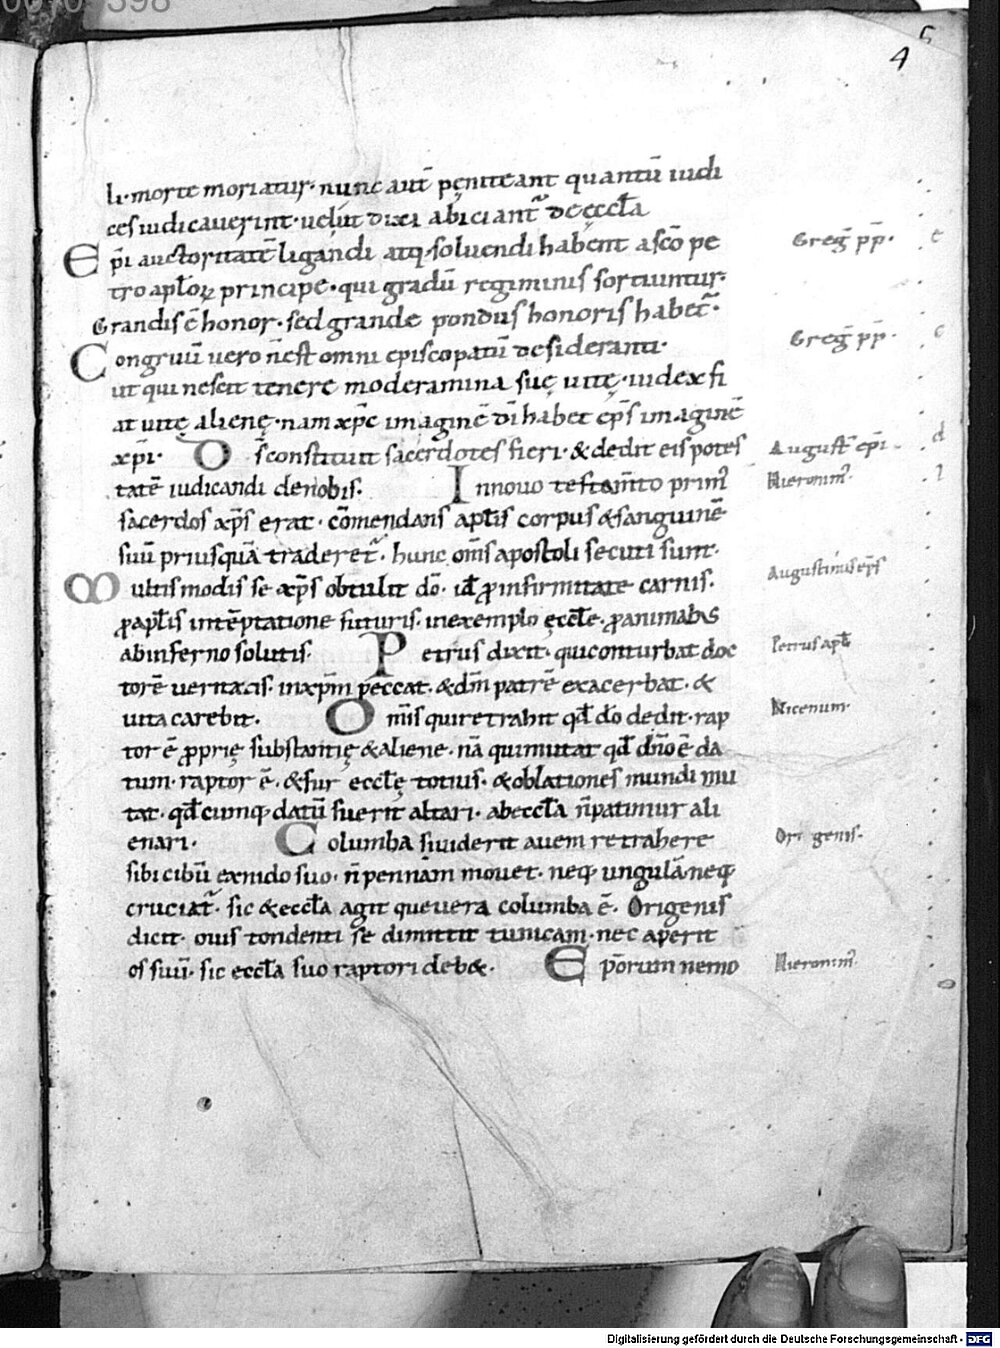 4 5
li· morte moriatur· nunc aut̄ pęniteant quantū iudi
ces iudicaverint· velut dixi abiciant᷑ de ęccl̄a
Ep̄i auctoritatē ligandi atq· solvendi habent a sc̄o pe Greḡ pp̄·
tro apl̄oꝝ principe· qui gradū regiminis sortiuntur·
Grandis ē honor· sed grande pondus honoris habet᷑·
Congruū vero n̄ est omni episcopatū desideranti· Greḡ pp̄·
ut qui nescit tenere moderamina suę vitę· iudex fi
at vitę alienę· nam xp̄c imaginē dī habet ep̄s imaginē
xp̄i· D̄s constituit sacerdotes fieri· & dedit eis potes August̄ ep̄i
tatē iudicandi de nobis· In novo testam̄to prim᷒ Hieronim᷒·
sacerdos xp̄s erat· cōmendans apl̄is corpus & sanguinē
suū priusquā traderet᷑· hunc om̄s apostoli secuti sunt·
Multis modis se xp̄s obtulit dō· id̄ ꝓ infirmitate carnis· Augustinus ep̄s
ꝓ apl̄is in tēptatione futuris· in exemplo ęccl̄e· ꝓ animabus
ab inferno solutis· Petrus dixit· qui conturbat doc Petrus apl̄s
torē veritatis· in xp̄m peccat· & dm̄ patrē exacerbat· &
vita carebit· Om̄is qui retrahit qd̄ dō dedit· rap Nicenum·
tor ē ꝓprię substantię & aliene· nā qui mutat qd̄ dn̄o ē da
tum· raptor ē· & fur eccl̄ę totius· & oblationes mundi mu
tat· qd̄cumq· datū fuerit altari· ab eccl̄a n̄ patimur ali
enari· Columba si viderit avem retrahere Origenis·
sibi cibū ex nido suo· n̄ pennam movet· neq· ungulā· neq·
cruciat᷑· sic & eccl̄a agit que vera columba ē· Origenis
dicit· ovis tondenti se dimittit tunicam· nec aperit
os suū· sic eccl̄a suo raptori deb&· Ep̄orum nemo Hieronim᷒·
Digitalisierung gefördert durch die Deutsche Forschungsgemeinschaft - DFG